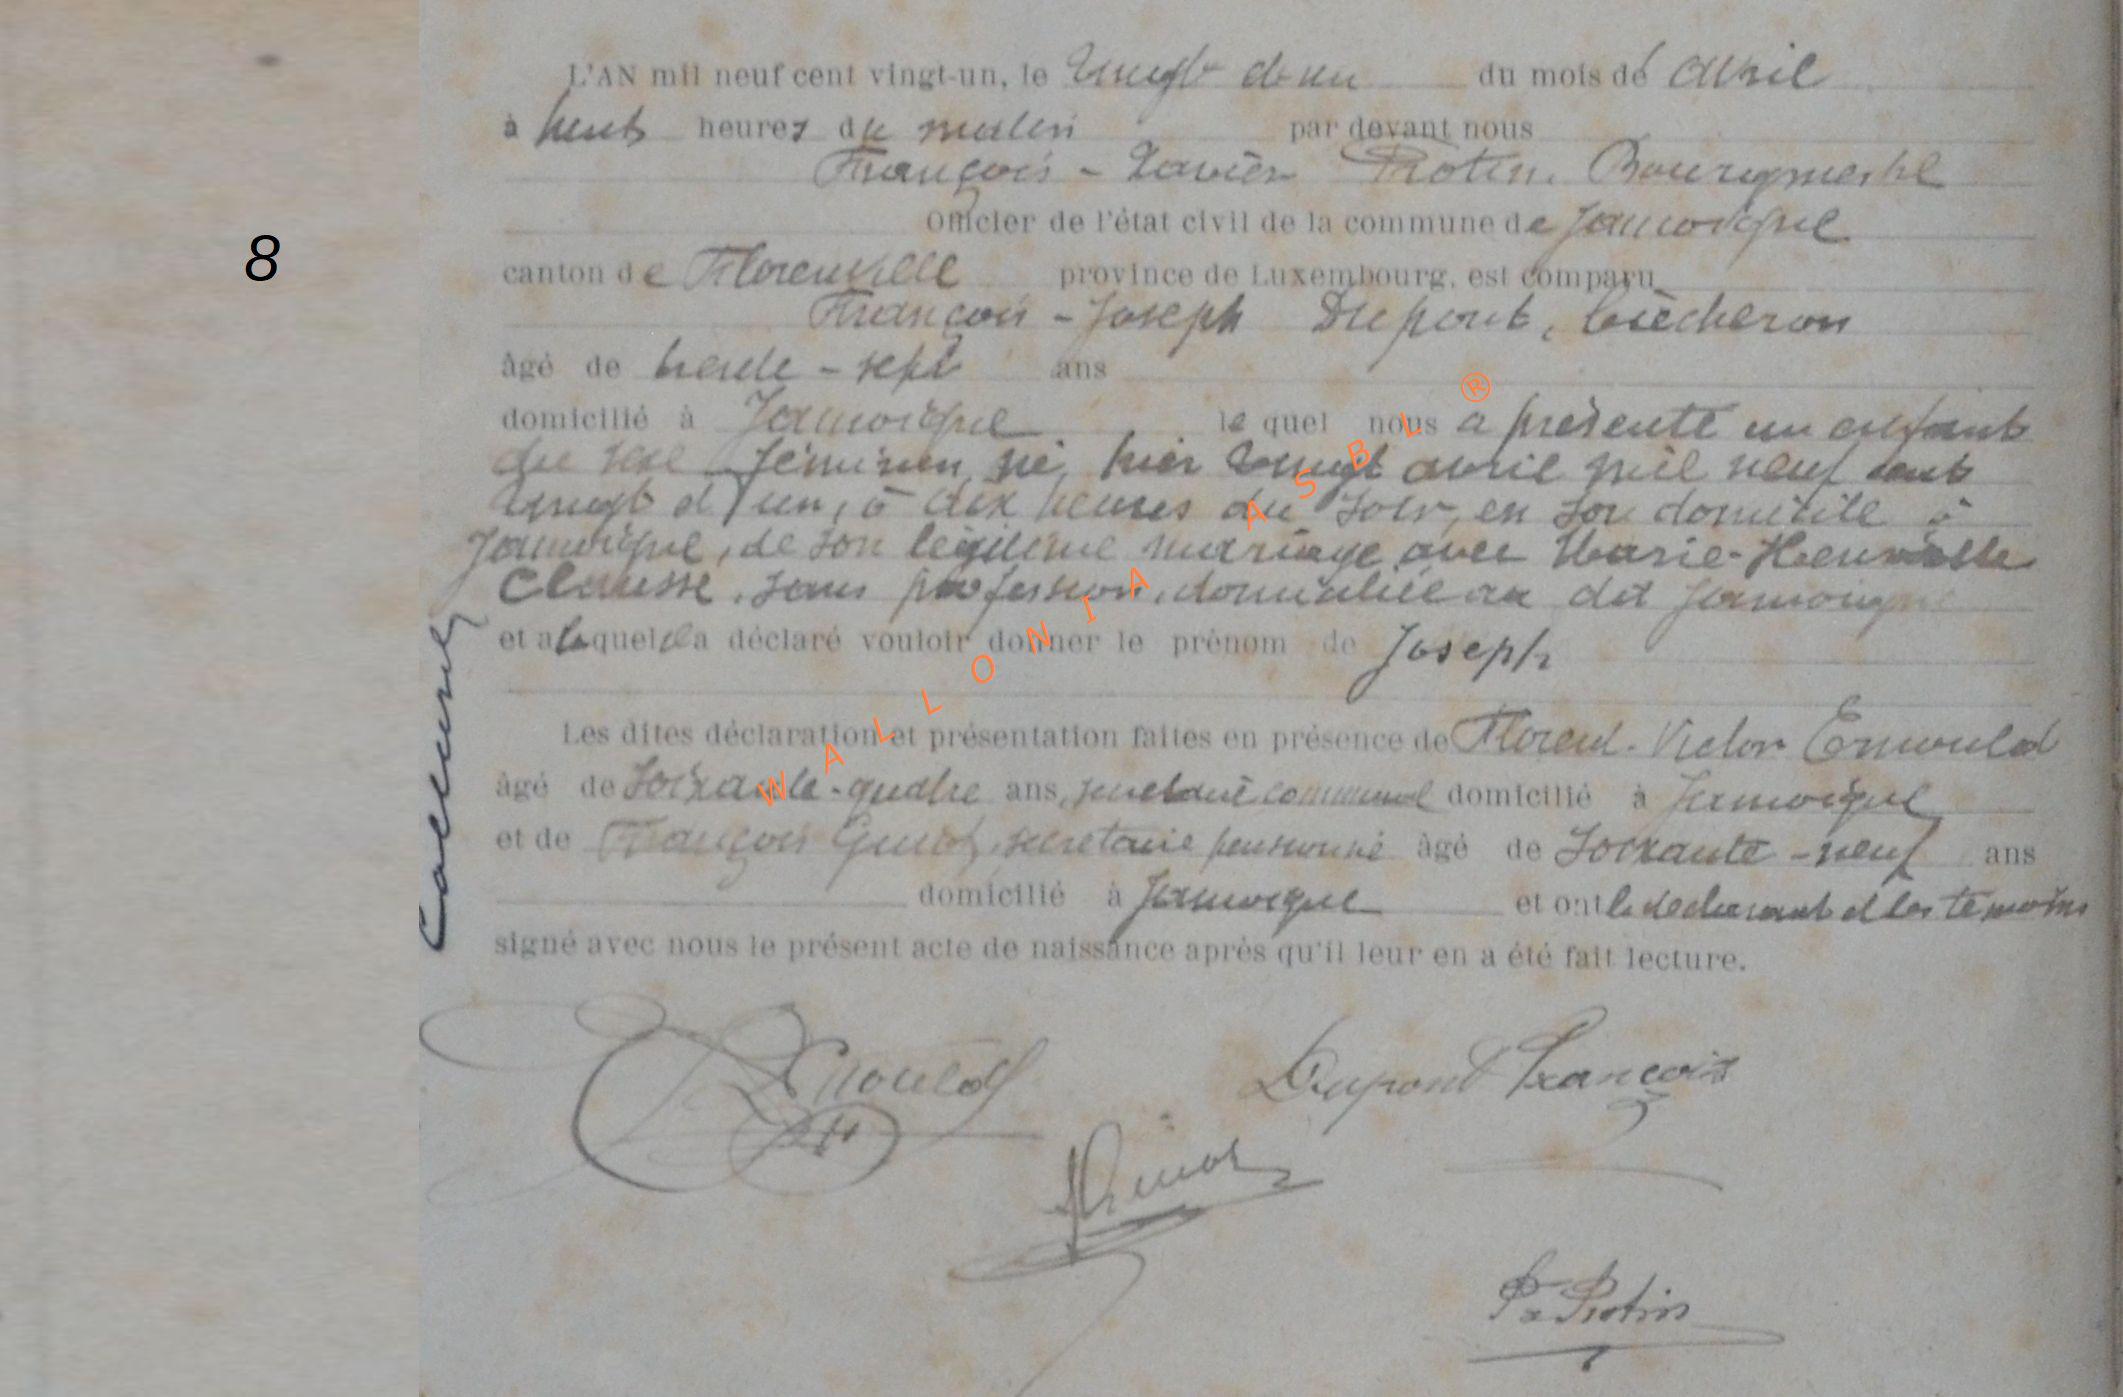 8
L'AN mil neuf cent vingt-un, le Vingt et un du mois de avril
à huit heures du matin par devant nous
François-Xavier Protin, Bourgmestre
Officier de l'état civil de la commune de Jamoigne
canton de Florenville province de Luxembourg, est comparu
François-Joseph Dupont, bûcheron
âgé de trente-sept ans
domicilié à Jamoigne lequel nous a présenté un enfant
du sexe féminin, né, hier vingt avril mil neuf cent
vingt et un, à dix heures du soir, en son domicile à
Jamoigne, de son légitime mariage avec Marie-Henriette
Clausse, sans profession, domiciliée au dit Jamoigne
et a déclaré vouloir donner le prénom de Joseph
Les dites déclaration et présentation faites en présence de Florent-Victor Ernould
âgé de soixante-quatre ans, secrétaire communal domicilié à Jamoigne
et de François Guiot, secrétaire pensionné âgé de soixante-neuf ans
domicilié à Jamoigne et ont le déclarant et les témoins
signé avec nous le présent acte de naissance après qu'il leur en a été fait lecture.
WALLONIA ASBL ®
Ernould
Dupont François
Guiot
Fx Protin